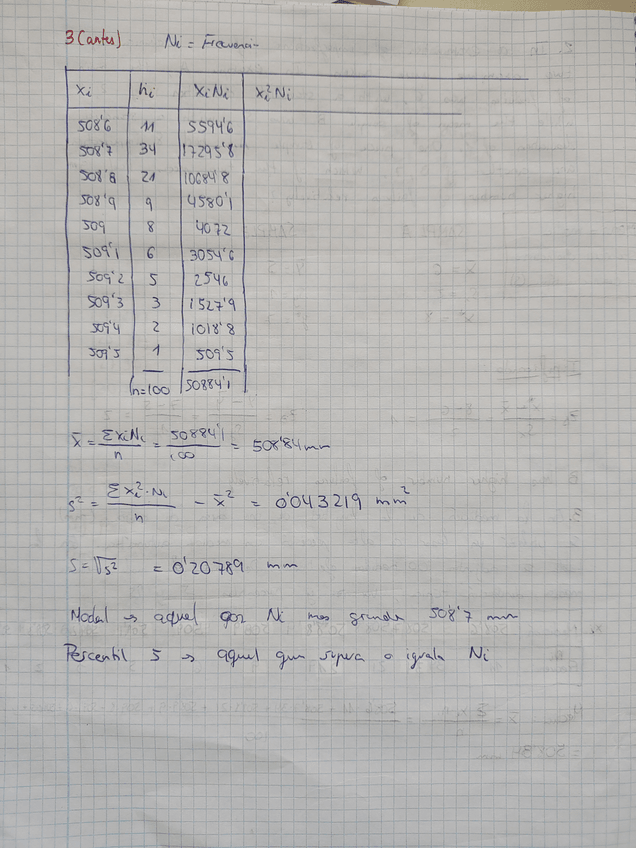 3 (antes) Ni = Frecuenci
xi ni xiNi xi²Ni
508'6 11 5594'6
508'7 34 17295'8
508'8 21 10684'8
508'9 9 4580'1
509 8 4072
509'1 6 3054'6
509'2 5 2546
509'3 3 1527'9
509'4 2 1018'8
509'5 1 509'5
n=100 50884'1
x̄ = ΣxiNi / n = 50884'1 / 100 = 508'84 mm
s² = Σxi²·Ni / n - x̄² = 0'043219 mm²
S = √s² = 0'20789 mm
Modal → aquel por Ni mas grande 508'7 mm
Percentil 5 → aquel que supera o iguala Ni